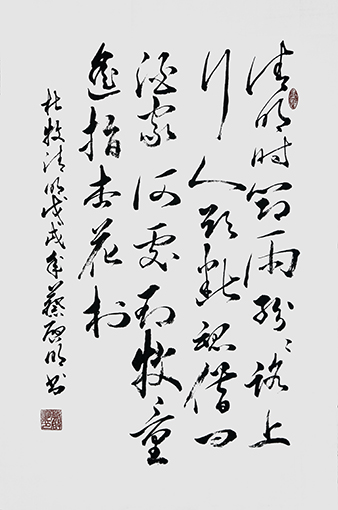 清明时節雨纷纷路上
行人欲断魂借问
酒家何处牧童
遥指杏花村
杜牧清明戊戌年蔡启明书